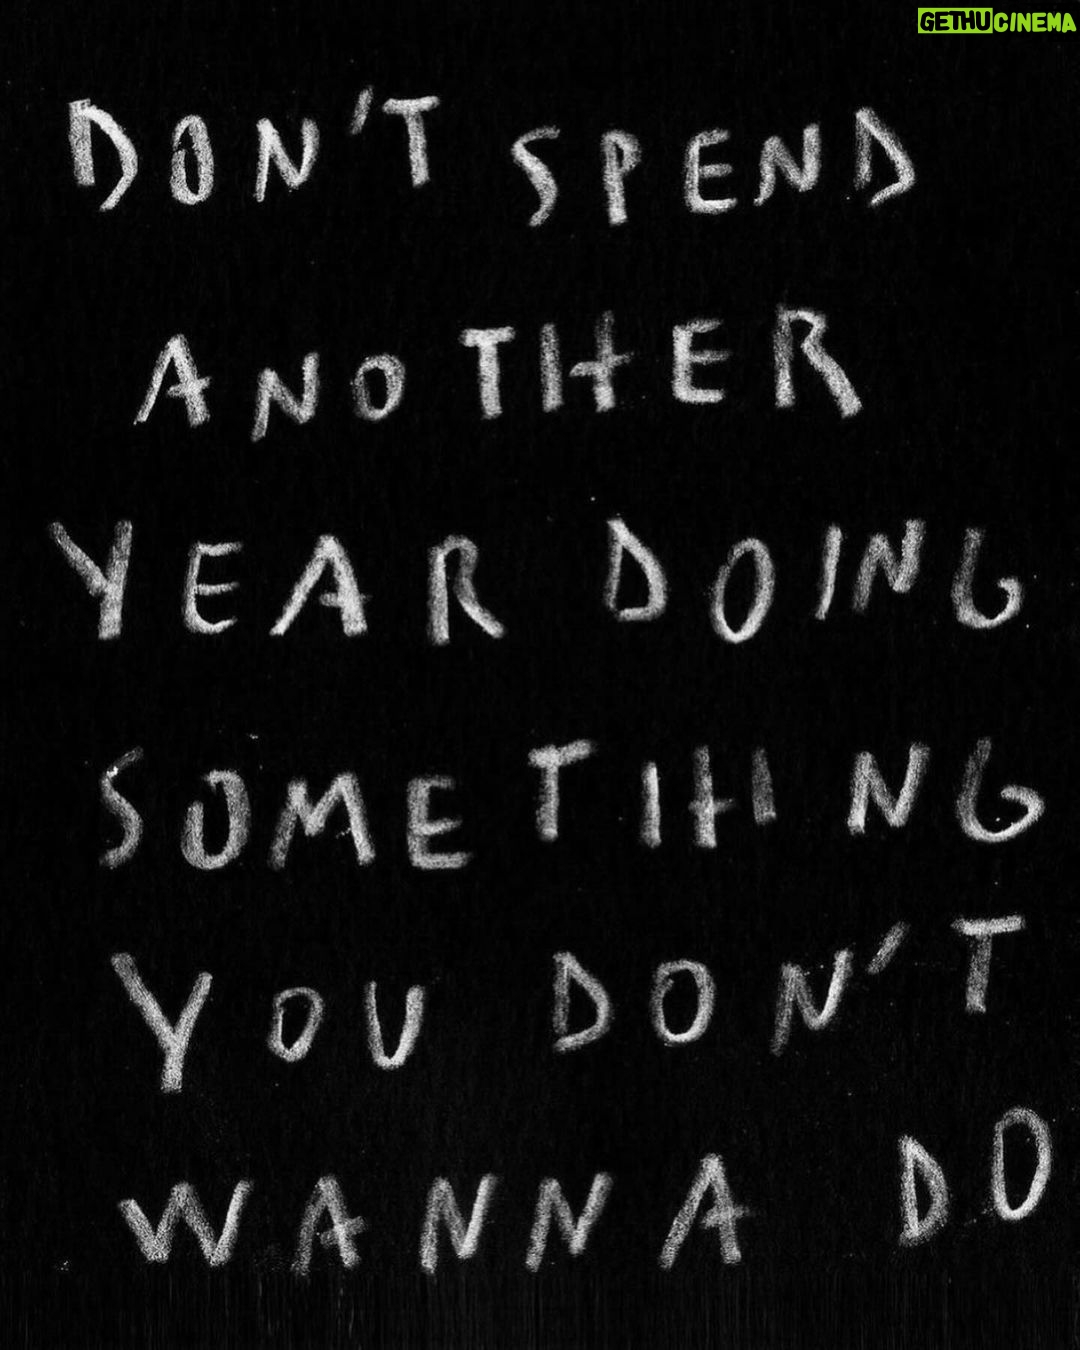 GETHUCINEMA
DON'T SPEND
ANOTHER
YEAR DOING
SOMETHING
YOU DON'T
WANNA DO